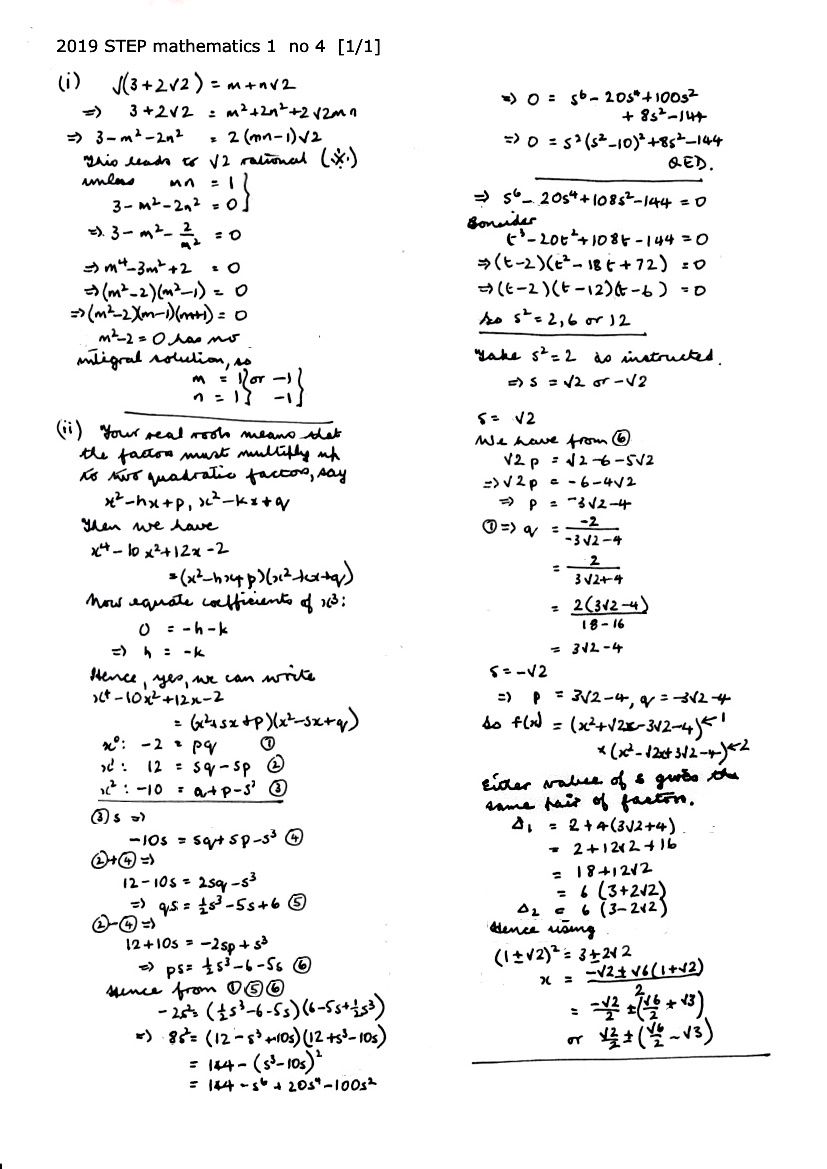 2019 STEP mathematics 1 no 4 [1/1]
(i) √(3+2√2) = m+n√2
⇒ 3+2√2 = m²+2n²+2√2mn
⇒ 3-m²-2n² = 2(mn-1)√2
This leads to √2 rational (※)
unless mn = 1 }
3-m²-2n² = 0 }
⇒ 3-m²-2/m² = 0
⇒ m⁴-3m²+2 = 0
⇒ (m²-2)(m²-1) = 0
⇒ (m²-2)(m-1)(m+1) = 0
m²-2 = 0 has no
integral solution, so
m = 1 } or -1 }
n = 1 } -1 }
(ii) Four real roots means that
the factors must multiply up
to two quadratic factors, say
x²-hx+p, x²-kx+q
Then we have
x⁴-10x²+12x-2
=(x²-hx+p)(x²-kx+q)
Now equate coefficients of x³:
0 = -h-k
⇒ h = -k
Hence, yes, we can write
x⁴-10x²+12x-2
= (x²+sx+p)(x²-sx+q)
x⁰: -2 = pq ①
x¹: 12 = sq-sp ②
x²: -10 = q+p-s² ③
③s ⇒
-10s = sq+sp-s³ ④
②+④ ⇒
12-10s = 2sq-s³
⇒ qs = ½s³-5s+6 ⑤
②-④ ⇒
12+10s = -2sp+s³
⇒ ps = ½s³-6-5s ⑥
Hence from ①⑤⑥
-2s² = (½s³-6-5s)(6-5s+½s³)
⇒ 8s² = (12-s³+10s)(12+s³-10s)
= 144-(s³-10s)²
= 144-s⁶+20s⁴-100s²
⇒ 0 = s⁶-20s⁴+100s²
+8s²-144
⇒ 0 = s²(s²-10)²+8s²-144
QED.
⇒ s⁶-20s⁴+108s²-144 = 0
Consider
t³-20t²+108t-144 = 0
⇒(t-2)(t²-18t+72) = 0
⇒(t-2)(t-12)(t-6) = 0
So s² = 2, 6 or 12
Take s² = 2 as instructed.
⇒ s = √2 or -√2
s = √2
We have from ⑥
√2p = √2-6-5√2
⇒√2p = -6-4√2
⇒ p = -3√2-4
①⇒ q = -2/(-3√2-4)
= 2/(3√2+4)
= 2(3√2-4)/(18-16)
= 3√2-4
s = -√2
⇒ p = 3√2-4, q = -3√2-4
So f(x) = (x²+√2x-3√2-4)←1
×(x²-√2x+3√2-4)←2
Either value of s gives the
same pair of factors.
Δ₁ = 2+4(3√2+4)
= 2+12√2+16
= 18+12√2
= 6(3+2√2)
Δ₂ = 6(3-2√2)
Hence using
(1±√2)² = 3±2√2
x = (-√2±√6(1+√2))/2
= -√2/2 ±(√6/2+√3)
or √2/2 ±(√6/2-√3)